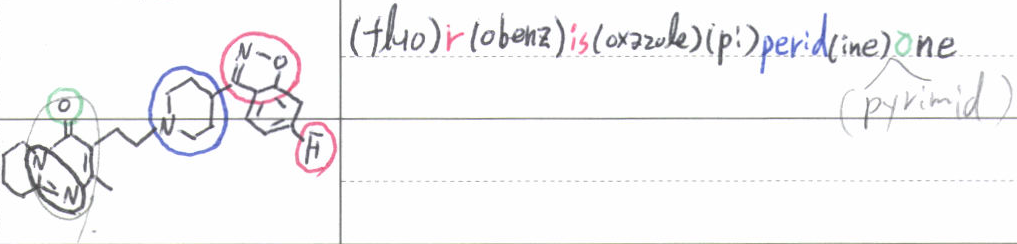 (fluo)r(obenz)is(oxazole)(pi)perid(ine)one
(pyrimid)
N
O
O
N
F
N
N